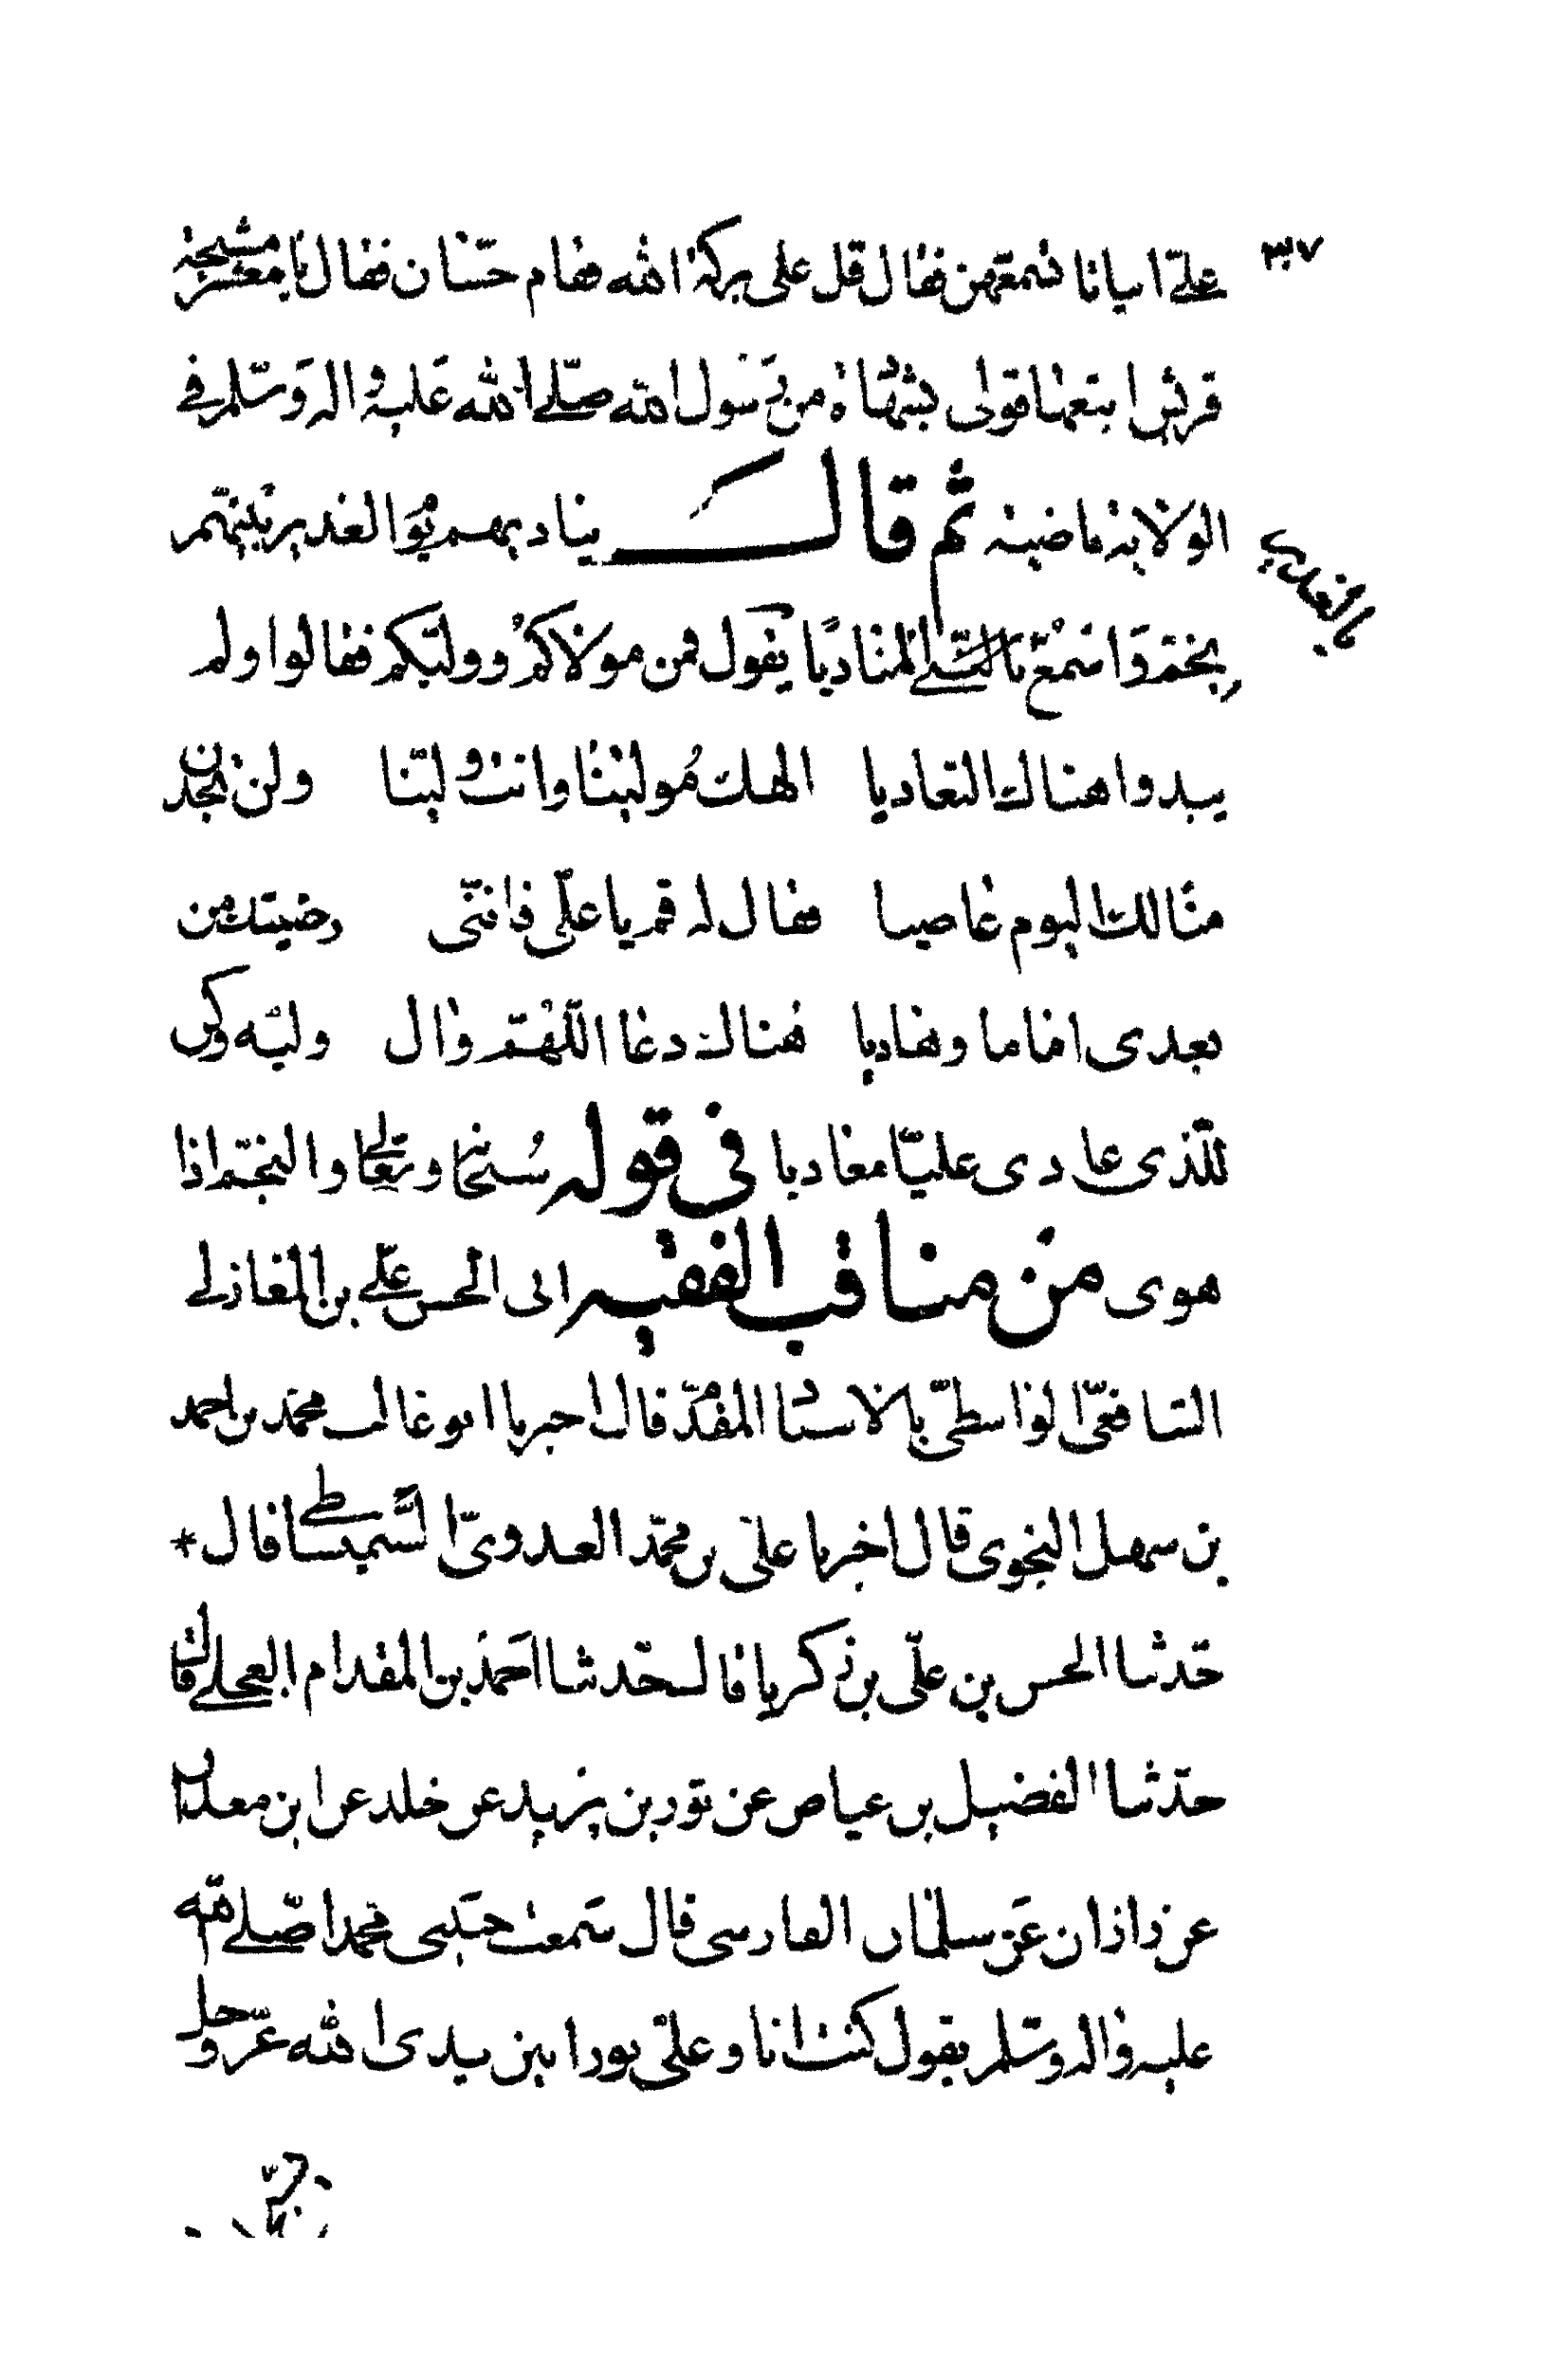 ٣٧
علىّ ابياتا تسمعهن فقال قل على بركة الله فقام حسّان فقال يا معشر مشيخة
قريش اتبعها قولى بشهادة من رسول الله صلّى الله عليه واله وسلم فى
الولاية ماضيه ثم قال يناديهم يوم الغدير نبيّهم
بالغدير
بخم واسمع بالنبى المناديا يقول فمن مولاكم ووليّكم فقالوا ولم
يبدوا هناك التعاديا الهك مولينا وانت وليّنا ولن تجدن
منّا لك اليوم عاصيا فقال له قم يا علىّ فاننى رضيتك من
بعدى اماما وهاديا هناك دعا اللهمّ وال وليّه وكن
للّذى عادى عليّا معاديا فى قوله سبحانه وتعالى والنجم اذا
هوى من مناقب الفقيه ابى الحسن علىّ بن المغازلى
الشافعىّ الواسطىّ بالاسناد المقدّم قال اخبرنا ابو غالب محمّد بن احمد
بن سهل النحوى قال اخبرنا علىّ بن محمّد العدوىّ الشميشاطى قال *
حدّثنا الحسن بن علىّ بن زكريا قال حدّثنا احمد بن المقدام العجلى قال
حدّثنا الفضيل بن عياض عن ثور بن يزيد عن خلد عن ابن معدان
عن زاذان عن سلمان الفارسى قال سمعت حبيبى محمدا صلّى الله
عليه واله وسلم يقول كنت انا وعلىّ نورا بين يدى الله عزّ وجل